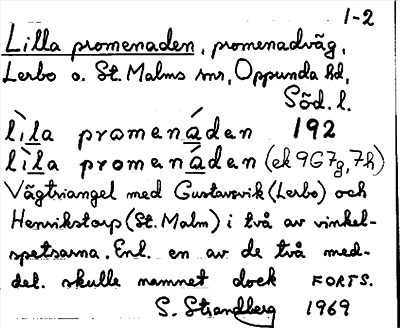 1-2
Lilla promenaden, promenadväg,
Lerbo o. St. Malms snr, Oppunda hd,
Söd. l.
lìla promenáden 192
lìla promenáden (ek 9G7g, 7h)
Vägtriangel med Gustavsvik (Lerbo) och
Henrikstorp (St. Malm) i två av vinkel-
spetsarna. Enl. en av de två med-
del. skulle namnet dock FORTS.
S. Strandberg 1969